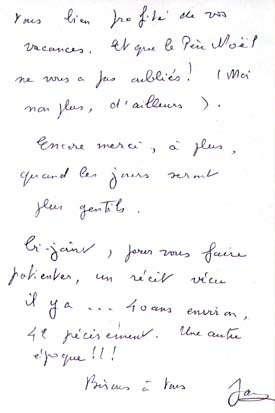 vous bien profité de vos
vacances. Et que le Père Noël
ne vous a pas oubliés ! (Moi
non plus, d'ailleurs ).
Encore merci, à plus,
quand les jours seront
plus gentils.
Ci-joint, pour vous faire
patienter, un récit vécu
il y a ... 40 ans environ,
42 précisément. Une autre
époque !!!
Bisous à vous